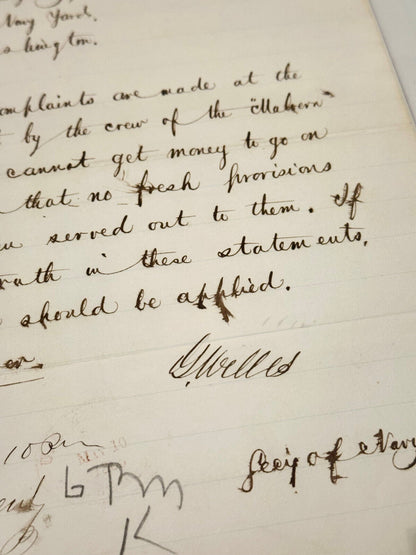 Navy Yard.
shington.
omplaints are made at the
by the crew of the "Malvern"
cannot get money to go on
that no fresh provisions
served out to them. If
ruth in these statements,
should be applied.
er.
G Welles
Secy of Navy
10 am
MAY 10
K